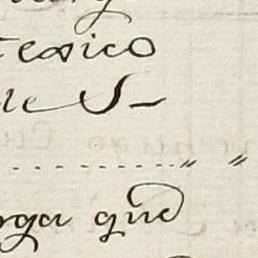 texico
de S-
........ " "
rga que